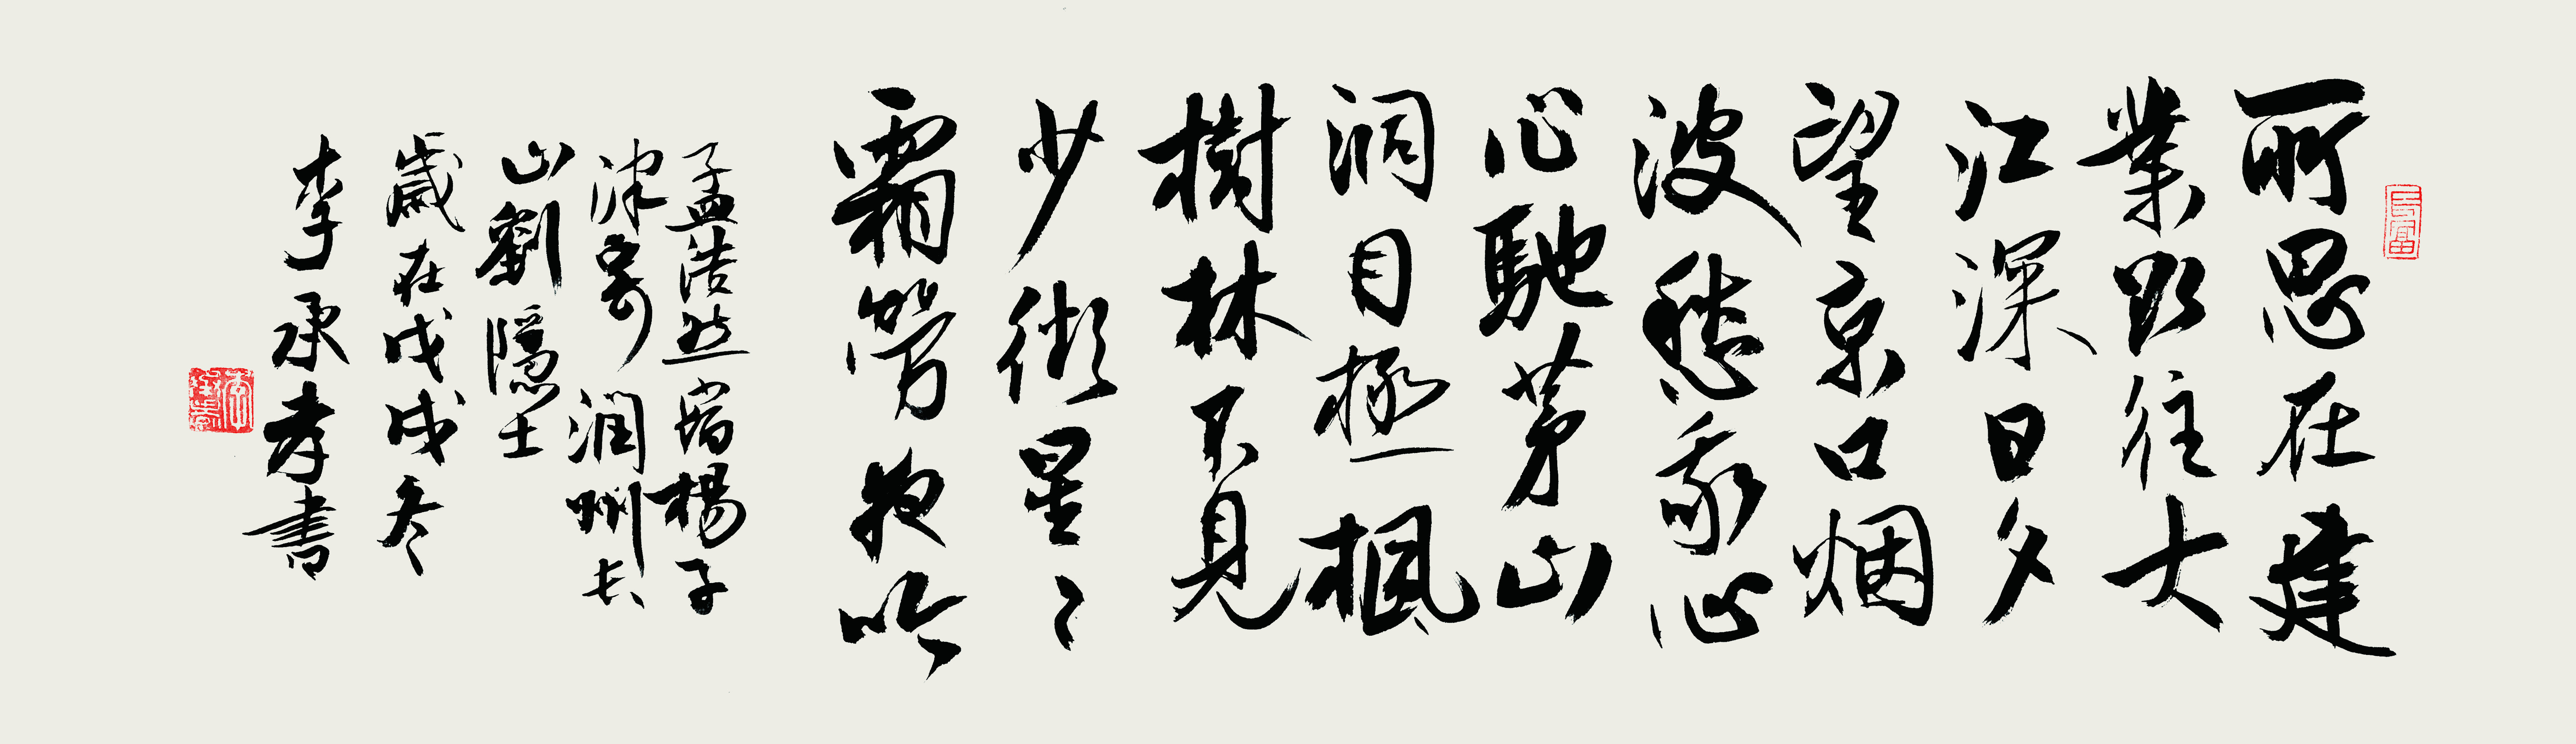 所思在建
業欲往大
江深日夕
望京口烟
波愁我心
心馳茅山
洞目極楓
樹林不見
少微星々
霜勞夜吟
孟浩然宿楊子
津寄潤州長
山劉隱士
歲在戊戌冬
李承孝書